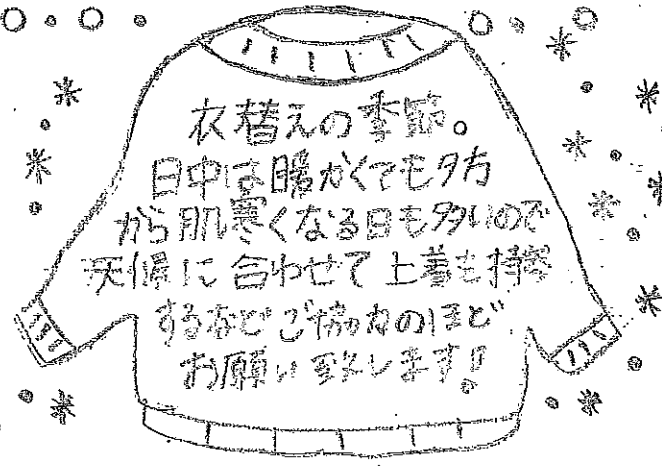 衣替えの季節。
日中は暖かくても夕方
から肌寒くなる日も多いので
天候に合わせて上着を持参
するなどご協力のほど
お願い致します!!